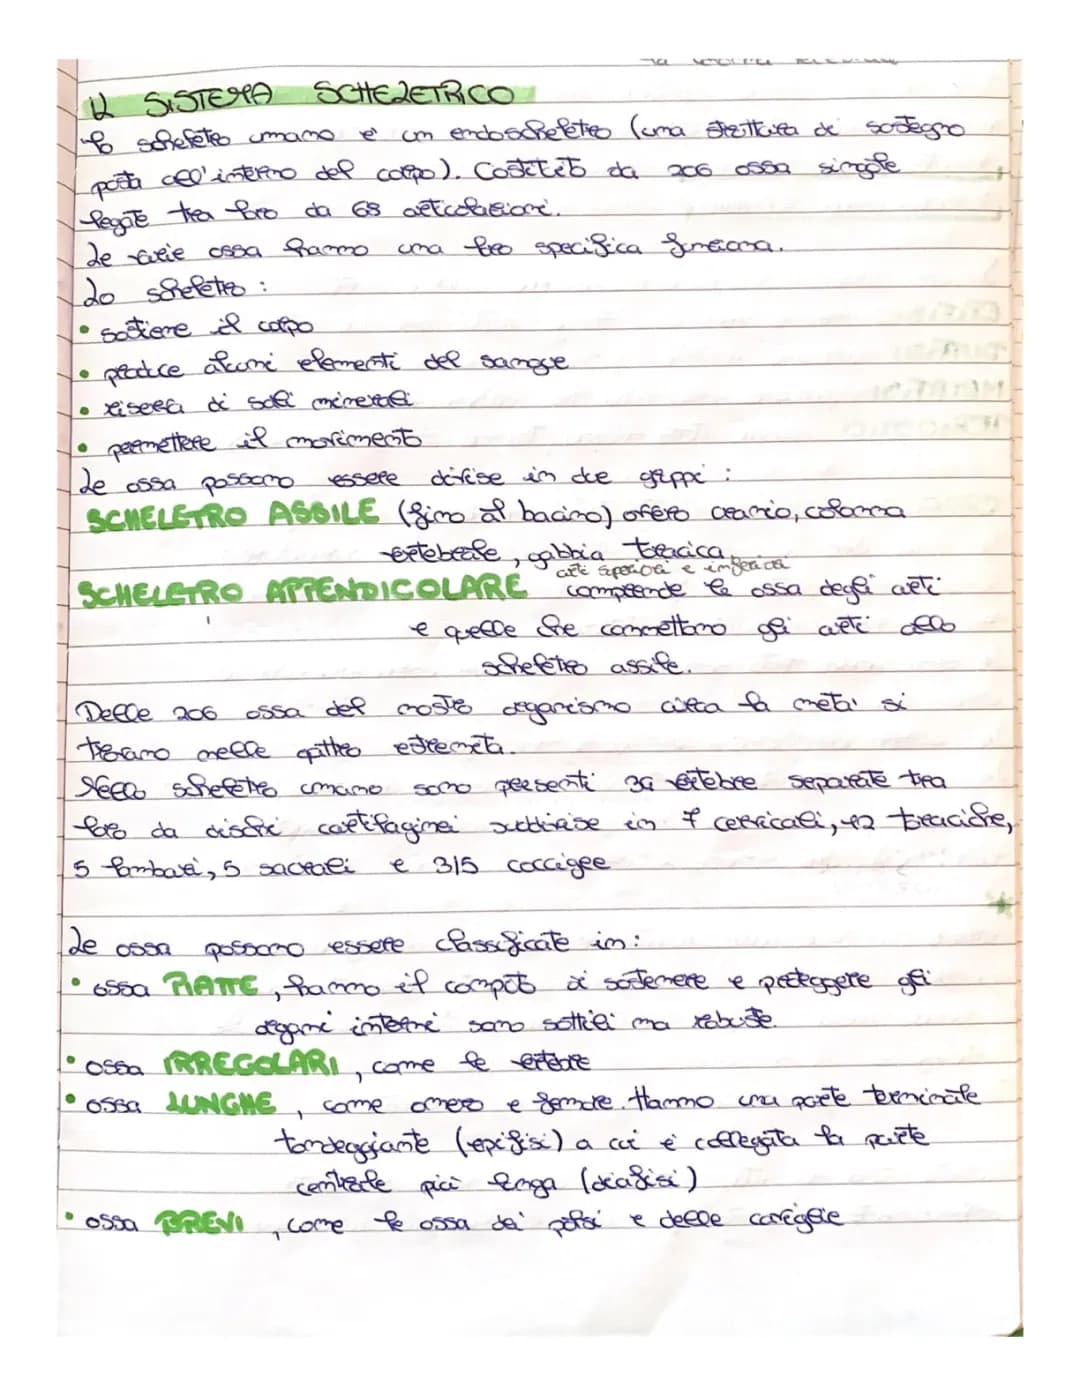 IL SISTEMA SCHELETRICO
Lo scheletro umano è un endoscheletro (una struttura di sostegno
posta all'interno del corpo). Costituito da 206 ossa singole
legate tra loro da 68 articolazioni.
Le varie ossa hanno una loro specifica funziona.
Lo scheletro :
• sostiene il corpo
• produce alcuni elementi del sangue
• riserva di sali minerali
• permettere il movimento
Le ossa possono essere divise in due gruppi :
SCHELETRO ASSILE (fino al bacino) ovvero cranio, colonna
vertebrale, gabbia toracica
arti superiori e inferiori
SCHELETRO APPENDICOLARE comprende le ossa degli arti
e quelle che connettono gli arti allo
scheletro assile.
Delle 206 ossa del nostro organismo circa la metà si
trovano nelle quattro estremità.
Nello scheletro umano sono presenti 34 vertebre separate tra
loro da dischi cartilaginei suddivise in 7 cervicali, 12 toraciche,
5 lombari, 5 sacrali e 3/5 coccigee
Le ossa possono essere classificate in:
• ossa PIATTE, hanno il compito di sostenere e proteggere gli
organi interni sono sottili ma robuste.
• ossa IRREGOLARI, come le vertebre
• ossa LUNGHE, come omero e femore. Hanno una parte terminale
tondeggiante (epifisi) a cui è collegata la parte
centrale più lunga (diafisi)
• ossa BREVI, come le ossa dei polsi e delle caviglie